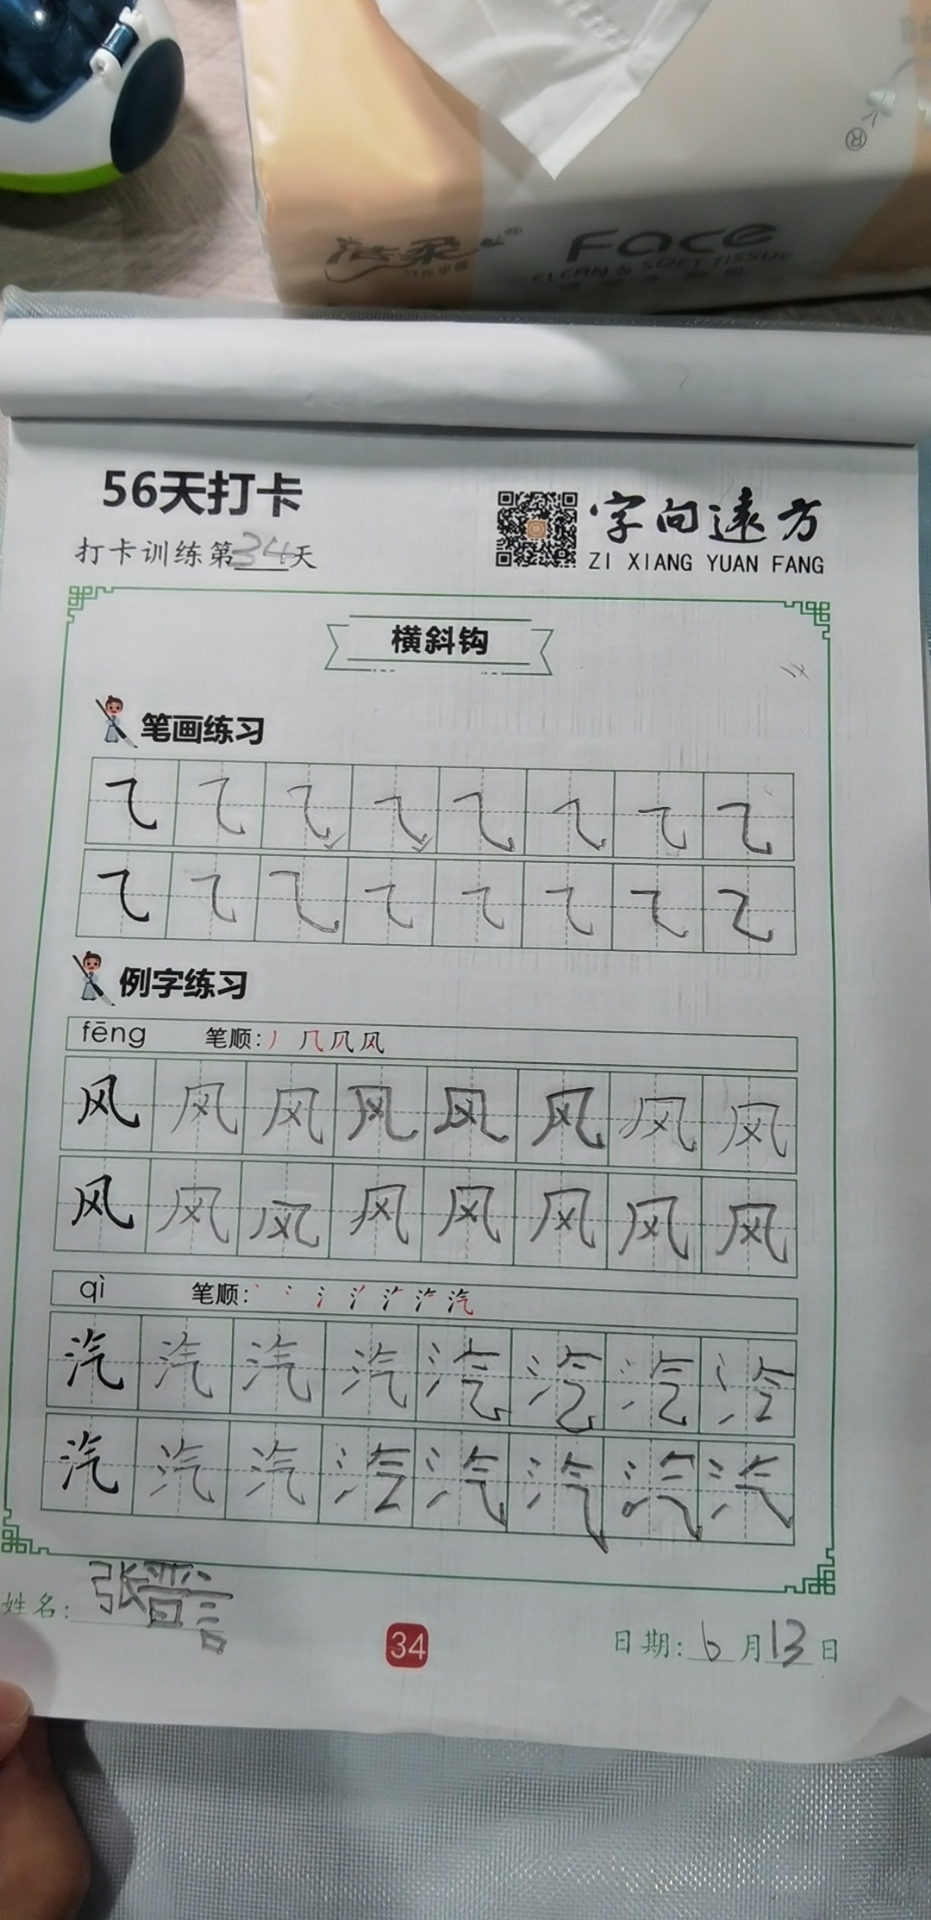 洁柔
®
Face
®
CLEAN & SOFT TISSUE
56天打卡
打卡训练第34天
字向遠方
ZI XIANG YUAN FANG
横斜钩
笔画练习
⺄ ⺄ ⺄ ⺄ ⺄ ⺄ ⺄ ⺄
⺄ ⺄ ⺄ ⺄ ⺄ ⺄ ⺄ ⺄
例字练习
fēng 笔顺:丿 几 凤 风
风 风 风 风 风 风 风 风
风 风 风 风 风 风 风 风
qì 笔顺:
汽 汽 汽 汽 汽 汽 汽 汽
汽 汽 汽 汽 汽 汽 汽 汽
姓名: 张晋言
34
日期: 6 月 13 日